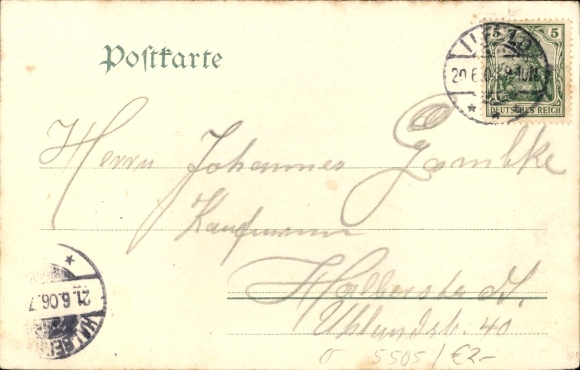 Postkarte
5 5
DEUTSCHES REICH
20.6.0
Herrn Johannes Gombke
Kaufmann
Halberstadt
Uhlandstr. 40
21.6.06.7
HALBERS
5505 / €2-